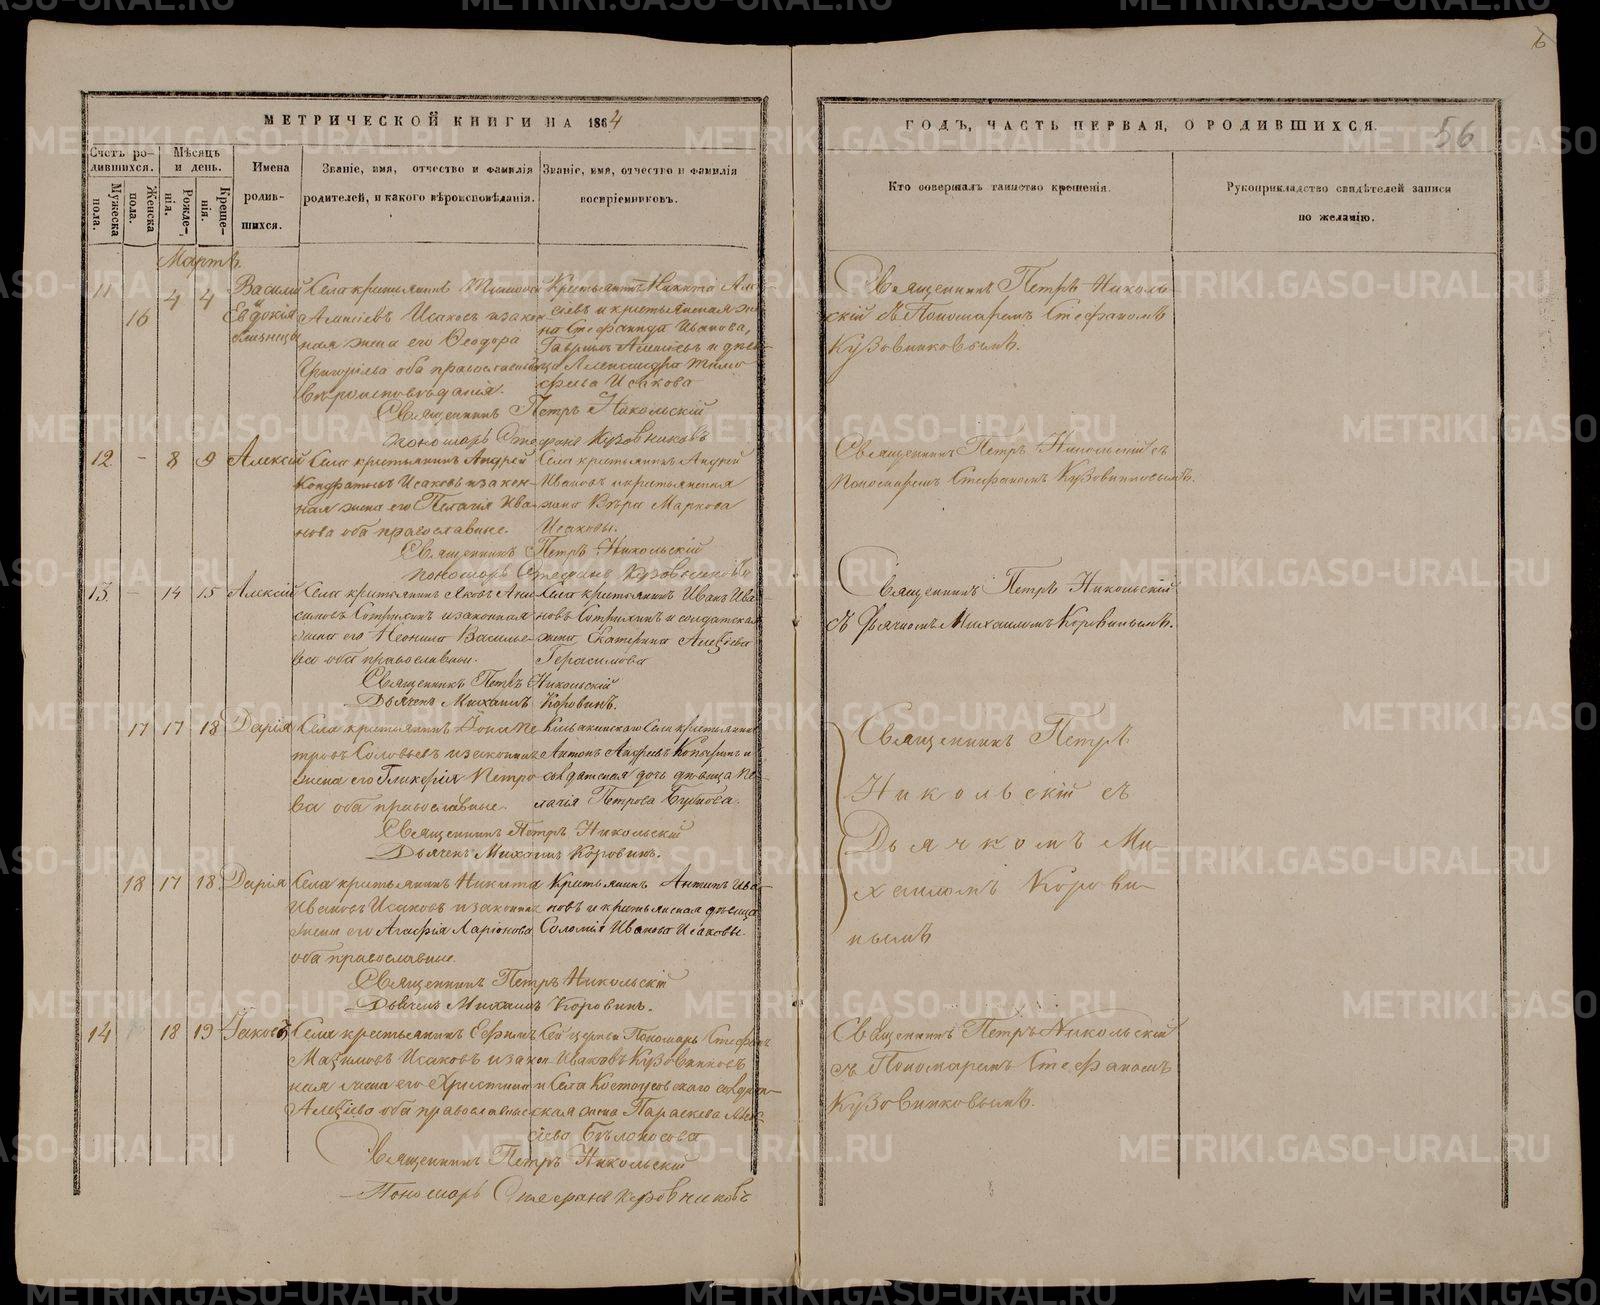 МЕТРИЧЕСКОЙ КНИГИ НА 1864
Счетъ родившихся.
Мужеска пола.
Женска пола.
Мѣсяцъ и день.
Рожденія.
Крещенія.
Имена родившихся.
Званіе, имя, отчество и фамилія родителей, и какого вѣроисповѣданія.
Званіе, имя, отчество и фамилія воспріемниковъ.
ГОДЪ, ЧАСТЬ ПЕРВАЯ, О РОДИВШИХСЯ.
56
6
Кто совершалъ таинство крещенія.
Рукоприкладство свидѣтелей записи по желанію.
Мартъ.
11 16 4 4
Василій
Евдокія
близнецы
Села крестьянинъ
Алексіевъ Исаковъ и закон
ная жена его Ѳеодора
Григорьева оба православнаго
вѣроисповѣданія.
Крестьянинъ Никита Але
сіевъ и крестьянская же
на Стефанида Иванова,
Гавріилъ Алексіевъ и дѣви
ца Александра Тимо
феева Исакова
Священникъ Петръ Никольскій
пономарь Стефанъ Кузовниковъ
Священникъ Петръ Николь
скій съ Пономаремъ Стефаномъ
Кузовниковымъ.
12 - 8 9
Алексій
Села крестьянинъ Андрей
Кондратьевъ Исаковъ и закон
ная жена его Пелагія Ива
нова оба православные.
Села крестьянинъ Андрей
Ивановъ и крестьянская
жена Вѣра Маркова
Исаковы.
Священникъ Петръ Никольскій
пономарь Стефанъ Кузовниковъ
Священникъ Петръ Никольскій съ
Пономаремъ Стефаномъ Кузовниковымъ.
13. - 14 15
Алексій
Села крестьянинъ Яковъ Ани
симовъ и законная
жена его Неонила Василье
ва оба православные.
Села крестьянинъ Иванъ Ива
новъ и солдатская
жена Екатерина Алексіева
Герасимова
Священникъ Петръ Никольскій
Дьячекъ Михаилъ Коровинъ.
Священникъ Петръ Никольскій
съ Дьячкомъ Михаиломъ Коровинымъ.
17 17 18
Дарія
Села крестьянинъ Іона Пе
тровъ Соловьевъ и законная
жена его Гликерія Петро
ва оба православные.
Села крестьянинъ
Антонъ Андреевъ и
солдатская дочь дѣвица Пе
лагія Петрова
Священникъ Петръ Никольскій
Дьячекъ Михаилъ Коровинъ.
Священникъ Петръ
Никольскій съ
Дьячкомъ Ми
хаиломъ Корови
нымъ
18 17 18
Дарія
Села крестьянинъ Никита
Ивановъ Исаковъ и законная
жена его Агафія Ларіонова
оба православные.
Крестьянинъ Антипъ Ива
новъ и крестьянская дѣвица
Соломія Иванова Исаковы.
Священникъ Петръ Никольскій
Дьячекъ Михаилъ Коровинъ.
14 18 19
Іаковъ
Села крестьянинъ Ефимъ
Максимовъ Исаковъ и закон
ная жена его Христина
Алексіева оба православные
Сей церкви Пономарь Стефанъ
Ивановъ Кузовниковъ
и Села Костоусовскаго солдат
ская жена Параскева Алек
сіева Бѣлоносова
Священникъ Петръ Никольскій
Пономарь Стефанъ Кузовниковъ
Священникъ Петръ Никольскій
съ Пономаремъ Стефаномъ
Кузовниковымъ.
METRIKI.GASO-URAL.RU